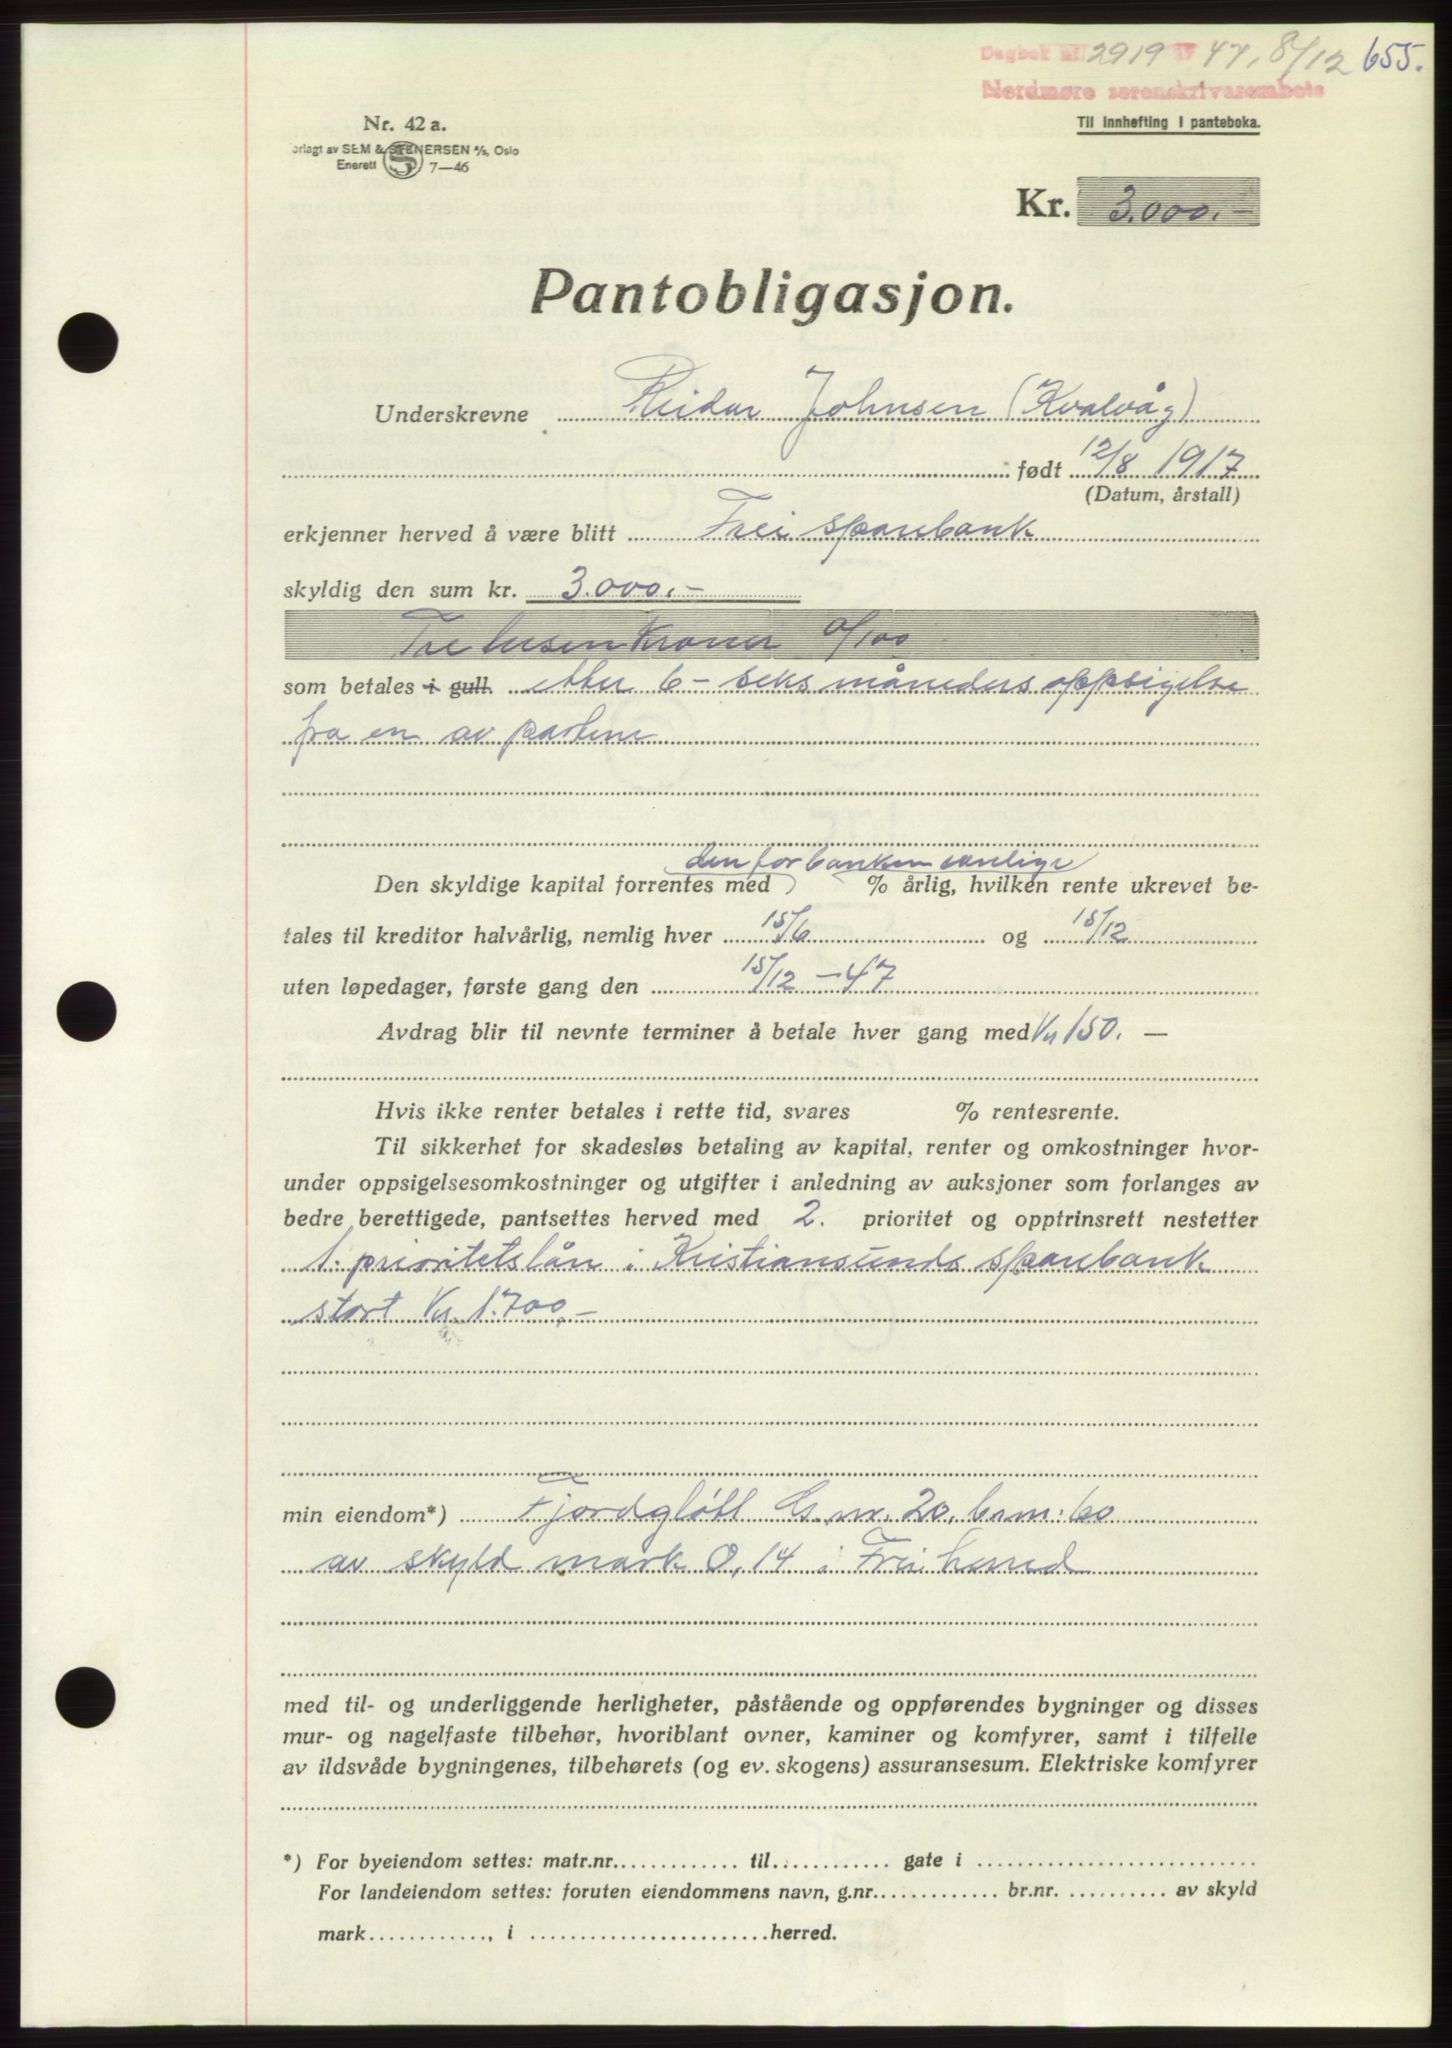 Dagbok nr. 2919 19 47, 8/12 655.
Nordmøre sorenskrivarembete
Nr. 42 a.
Til innhefting i panteboka.
orlagt av SEM & STENERSEN A/S, Oslo
Enerett 7—46
Kr. 3.000.-
Pantobligasjon.
Underskrevne Reidar Johnsen (Kvalvåg)
født 12/8 1917
(Datum, årstall)
erkjenner herved å være blitt Frei sparebank
skyldig den sum kr. 3.000.-
Tre tusen kroner 0/100
som betales i gull. etter 6 - seks måneders oppsigelse
fra en av partene
den for banken vanlige
Den skyldige kapital forrentes med % årlig, hvilken rente ukrevet be-
tales til kreditor halvårlig, nemlig hver 15/6 og 15/12
uten løpedager, første gang den 15/12 - 47
Avdrag blir til nevnte terminer å betale hver gang med Kr 150. —
Hvis ikke renter betales i rette tid, svares % rentesrente.
Til sikkerhet for skadesløs betaling av kapital, renter og omkostninger hvor-
under oppsigelsesomkostninger og utgifter i anledning av auksjoner som forlanges av
bedre berettigede, pantsettes herved med 2. prioritet og opptrinsrett nestetter
1. prioritetslån i Kristiansunds sparebank
stort Kr. 1.700,-
min eiendom*) Fjordgløtt G.nr. 20, br.nr. 60
av skyld mark 0,14 i Frei herred
med til- og underliggende herligheter, påstående og oppførendes bygninger og disses
mur- og nagelfaste tilbehør, hvoriblant ovner, kaminer og komfyrer, samt i tilfelle
av ildsvåde bygningenes, tilbehørets (og ev. skogens) assuransesum. Elektriske komfyrer
*) For byeiendom settes: matr.nr. til gate i
For landeiendom settes: foruten eiendommens navn, g.nr. br.nr. av skyld
mark , i herred.